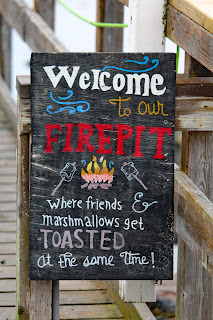 Welcome
to our
FIREPIT
where friends &
marshmallows get
TOASTED
at the same time!